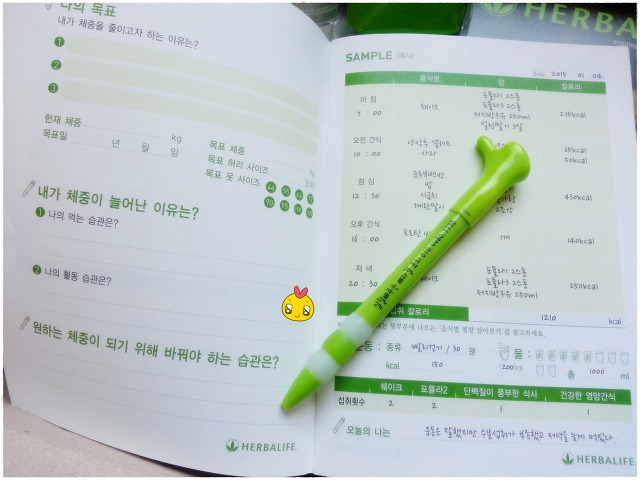 나의 목표
내가 체중을 줄이고자 하는 이유는?
1
2
3
현재 체중 kg
목표 체중 kg
목표일 년 월 일
목표 허리 사이즈
목표 옷 사이즈 44 55 66 77
내가 체중이 늘어난 이유는?
1 나의 먹는 습관은?
2 나의 활동 습관은?
원하는 체중이 되기 위해 바꿔야 하는 습관은?
HERBALIFE
HERBALIFE
SAMPLE (예시)
Date 2015 01 04
음식명 양 칼로리
아 침
7 : 00
쉐이크
포뮬라1 2스푼
포뮬라3 2스푼
저지방우유 250ml
275kcal
오전 간식
10 : 00
사과
65kcal
50kcal
점 심
12 : 30
밥
시금치
계란말이
430kcal
오후 간식
16 : 00
1개
140kcal
저 녁
20 : 30
쉐이크
포뮬라1 2스푼
포뮬라3 2스푼
저지방우유 250ml
250kcal
칼로리 1210 kcal
뒷부분에 나오는 '음식별 열량 알아보기'를 참고하세요.
종류 빨리걷기 / 30 분
kcal 150
물 :
200ml
총 1000 ml
쉐이크 포뮬라2 단백질이 풍부한 식사 건강한 영양간식
섭취횟수 2 2 1 1
오늘의 나는 운동은 잘했지만 수분섭취가 부족했고 저녁을 늦게 먹었다.
HERBALIFE